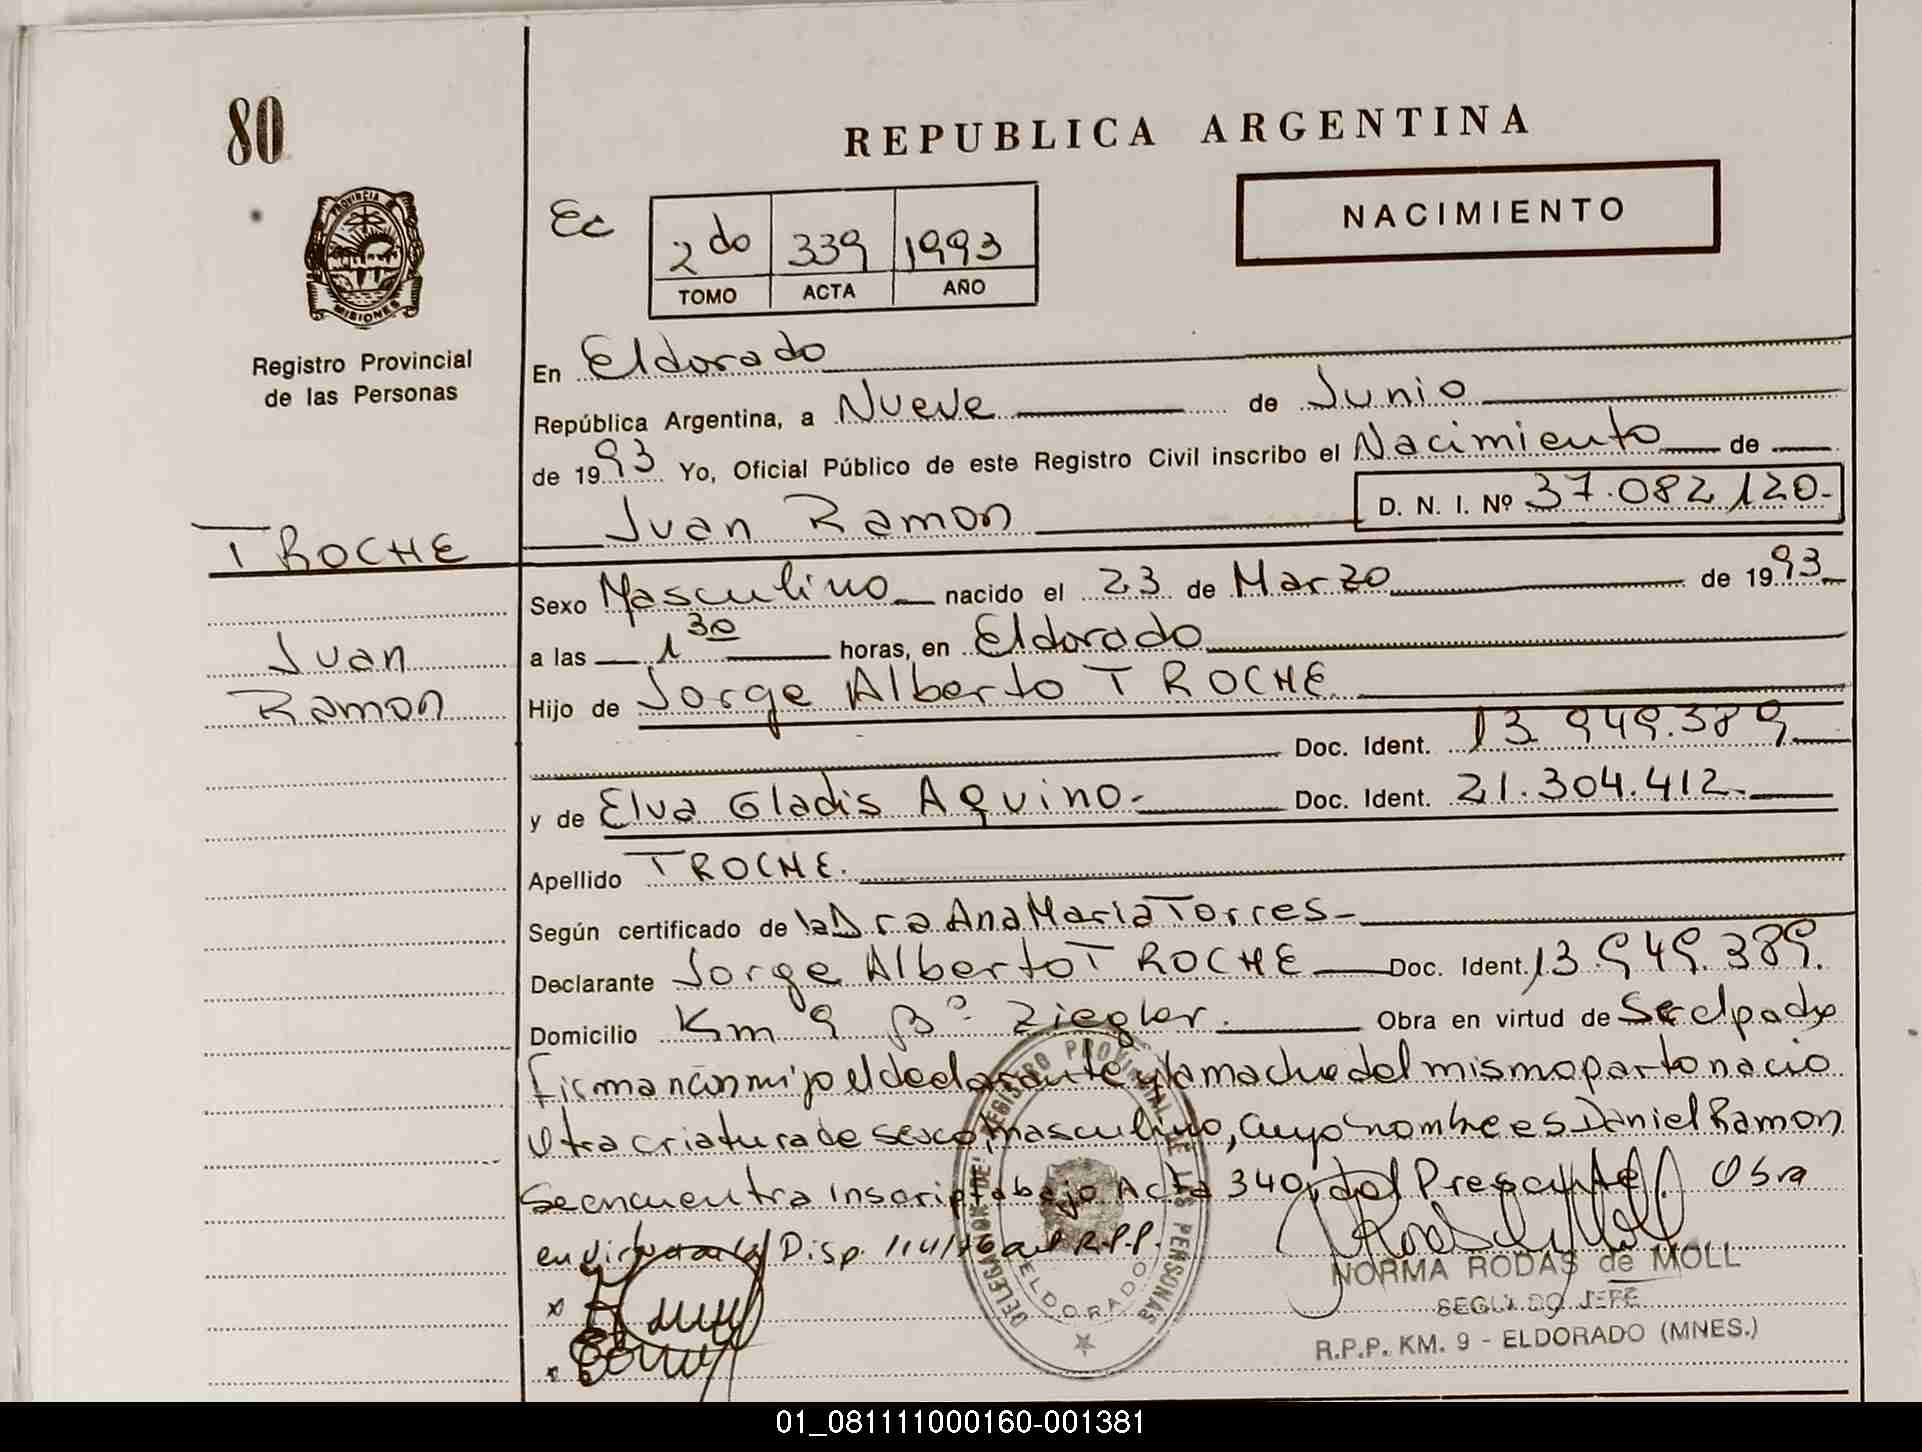 80
REPUBLICA ARGENTINA
PROVINCIA DE MISIONES
Ec
2do 339 1993
TOMO ACTA AÑO
NACIMIENTO
Registro Provincial
de las Personas
En Eldorado
República Argentina, a Nueve de Junio
de 1993 Yo, Oficial Público de este Registro Civil inscribo el Nacimiento de
Juan Ramon D. N. I. Nº 37.082.120-
TROCHE
Juan
Ramon
Sexo Masculino nacido el 23 de Marzo de 1993
a las 1 30 horas, en Eldorado
Hijo de Jorge Alberto TROCHE
Doc. Ident. 13.949.389
y de Elva Gladis Aquino- Doc. Ident. 21.304.412-
Apellido TROCHE.
Según certificado de la Dra Ana Maria Torres-
Declarante Jorge Alberto TROCHE Doc. Ident. 13.949.389.
Domicilio Km 9 Bº Ziegler. Obra en virtud de Ser el padre
firman conmigo el declarante y la madre del mismo parto nacio
otra criatura de sexo masculino, cuyo nombre es Daniel Ramon
se encuentra inscripta bajo Acta 340, del Presente. Obra
en virtud a la Disp. del R.P.P.
DELEGACION DEL REGISTRO PROVINCIAL DE LAS PERSONAS
ELDORADO
NORMA RODAS de MOLL
SEGUNDO JEFE
R.P.P. KM. 9 - ELDORADO (MNES.)
01_081111000160-001381